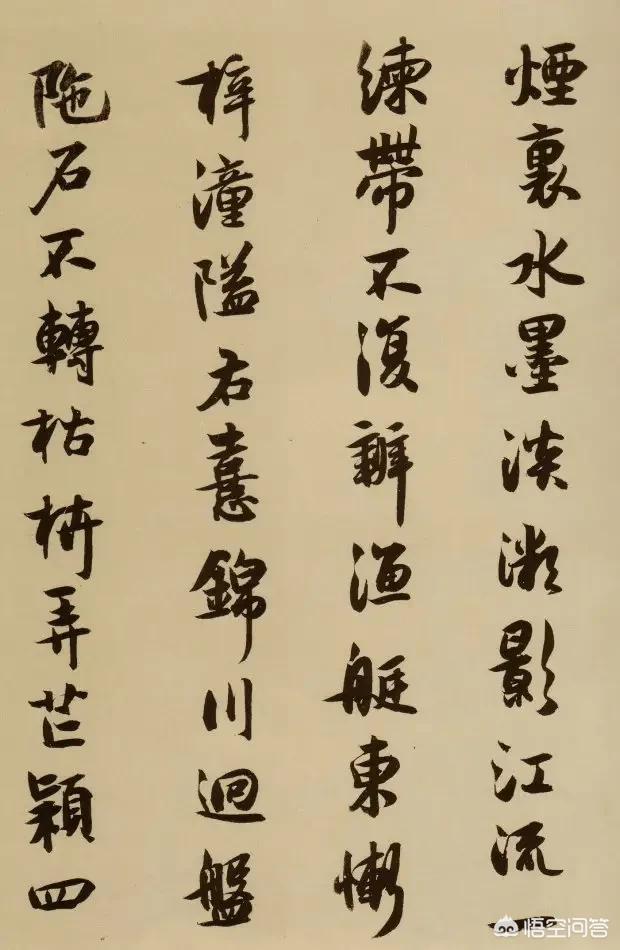 煙裏水墨淡影江流一
練帶不復辨漁艇東慚
梓潼隘右憙錦川迴盤
陁石不轉枯枿弄芒穎四
悟空问答